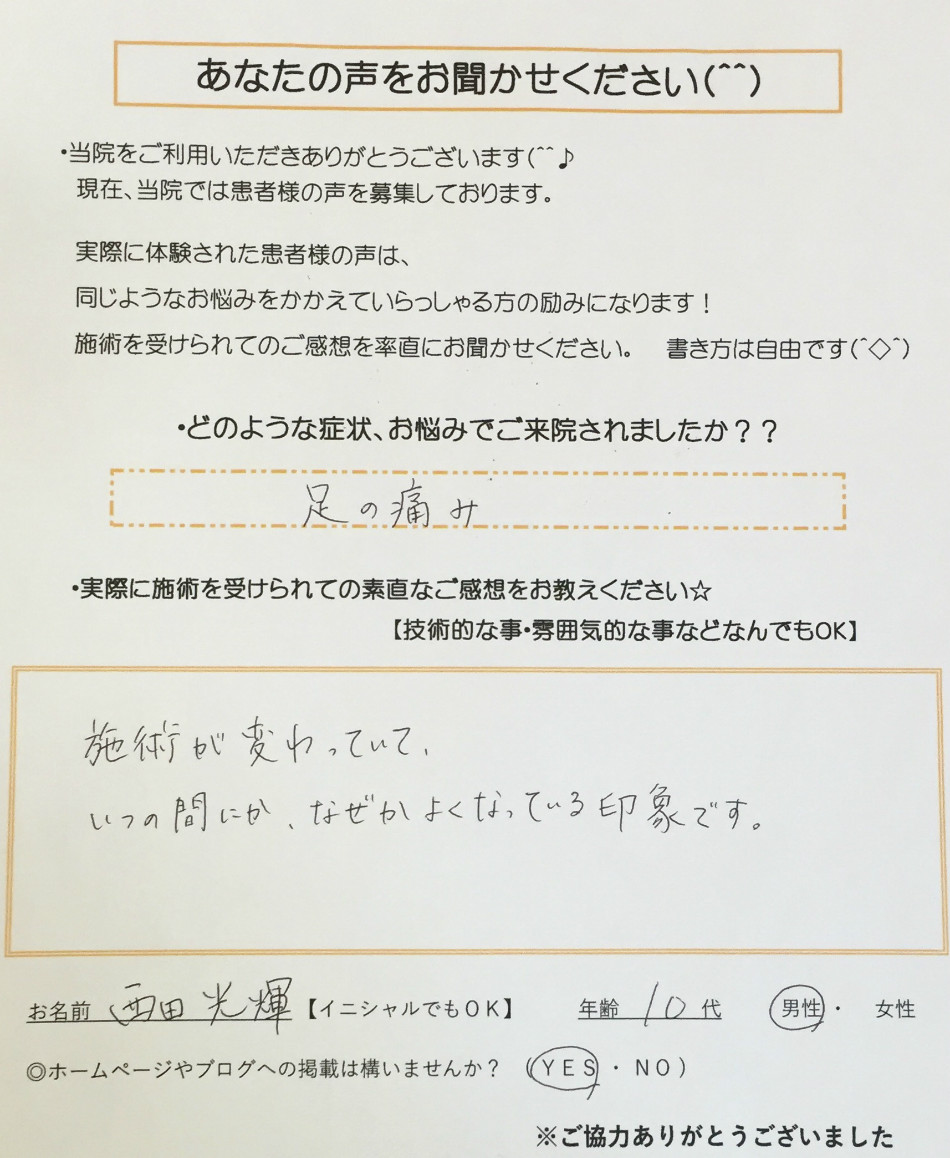 あなたの声をお聞かせください(^^)
・当院をご利用いただきありがとうございます(^^♪
現在、当院では患者様の声を募集しております。
実際に体験された患者様の声は、
同じようなお悩みをかかえていらっしゃる方の励みになります！
施術を受けられてのご感想を率直にお聞かせください。 書き方は自由です(^◇^)
・どのような症状、お悩みでご来院されましたか？？
足の痛み
・実際に施術を受けられての素直なご感想をお教えください☆
【技術的な事・雰囲気的な事などなんでもOK】
施術が変わっていて、
いつの間にか、なぜかよくなっている印象です。
お名前 西田 光輝 【イニシャルでもOK】 年齢 10 代 男性・ 女性
◎ホームページやブログへの掲載は構いませんか？ （YES・NO）
※ご協力ありがとうございました